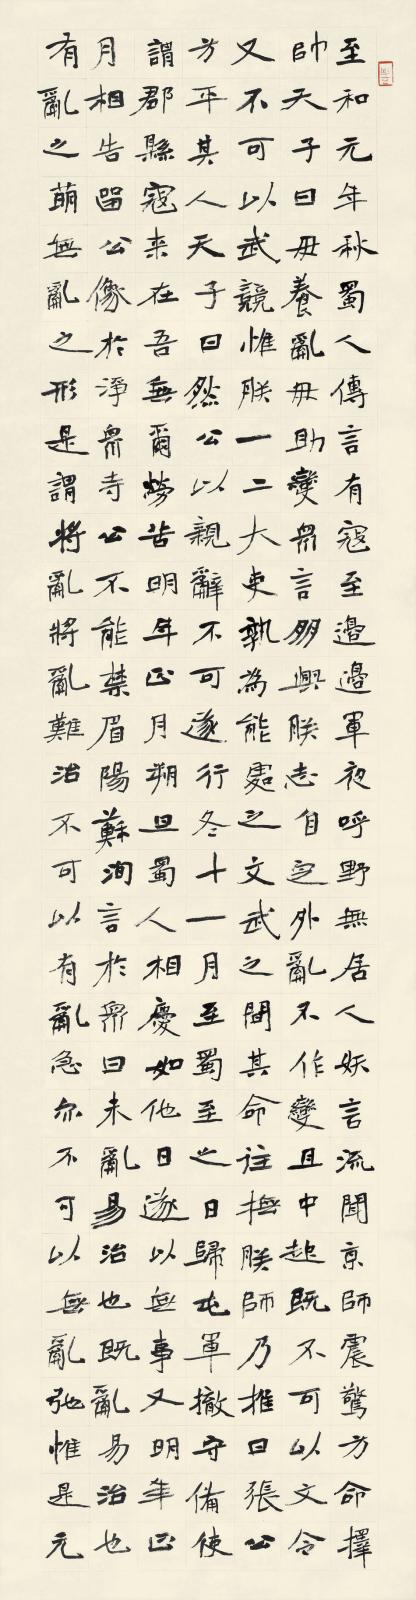 至和元年秋蜀人傳言有寇至邊邊軍夜呼野無居人妖言流聞京師震驚方命擇
帥天子曰毋養亂毋助變衆言朋興朕志自定外亂不作變且中起既不可以文令
又不可以武競惟朕一二大吏孰為能處之文武之間其命往撫朕師乃推曰張公
方平其人天子曰然公以親辭不可遂行冬十一月至蜀至之日歸屯軍撤守備使
謂郡縣寇来在吾無爾勞苦明年正月朔旦蜀人相慶如他日遂以無事又明年正
月相告留公像於淨衆寺公不能禁眉陽蘇洵言於衆曰未亂易治也既亂易治也
有亂之萌無亂之形是謂將亂將亂難治不可以有亂急亦不可以無亂弛惟是元